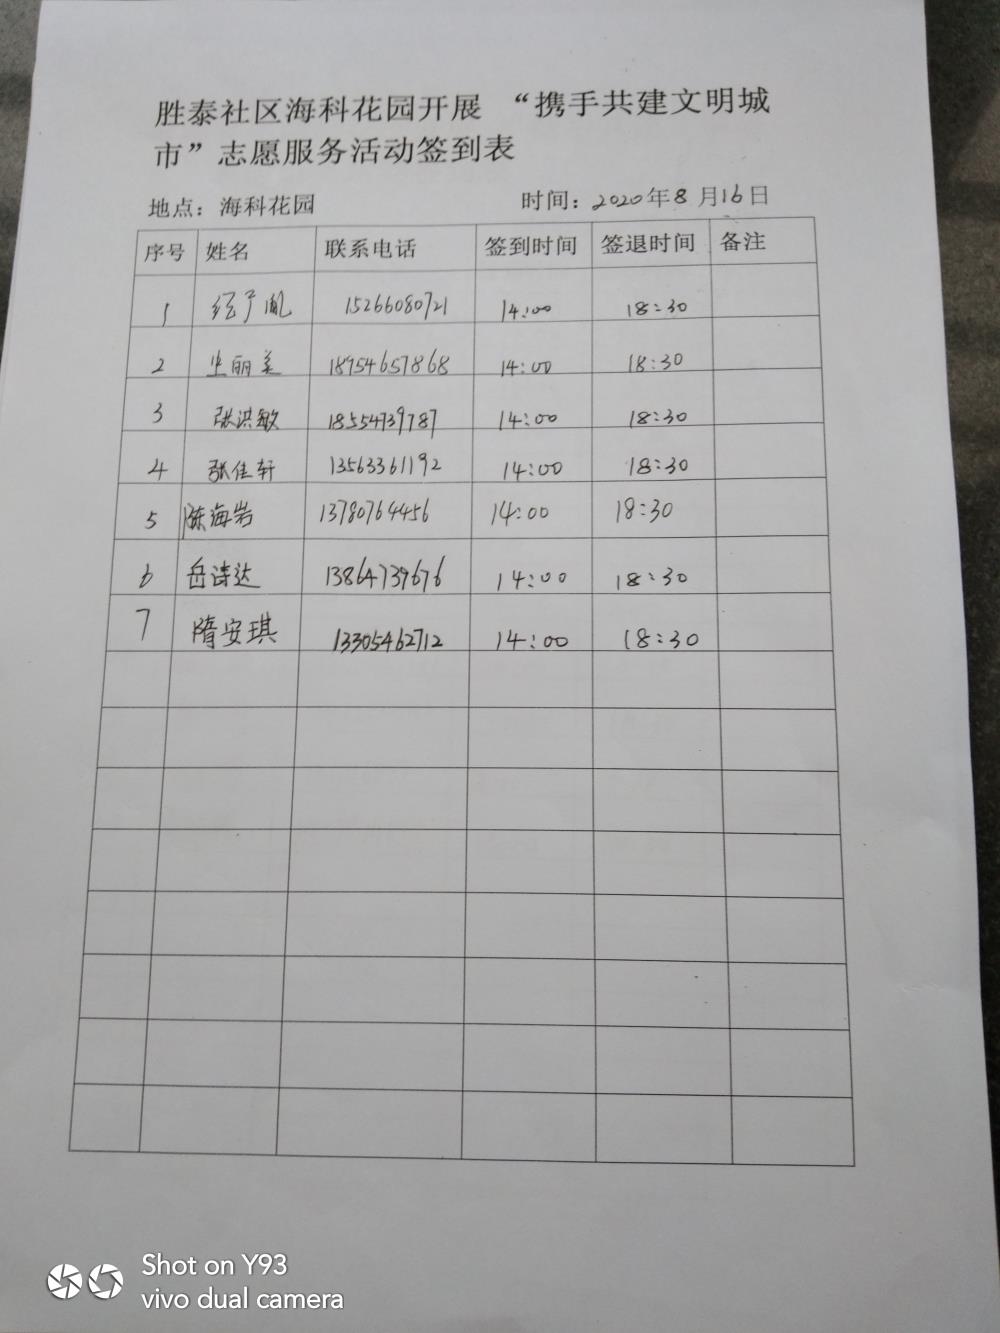 胜泰社区海科花园开展 “携手共建文明城
市”志愿服务活动签到表
地点：海科花园 时间：2020年8月16日
序号 姓名 联系电话 签到时间 签退时间 备注
1 15266080721 14:00 18:30
2 丽美 18954657868 14:00 18:30
3 张洪敏 18554739787 14:00 18:30
4 张佳轩 13563361192 14:00 18:30
5 陈海岩 13780764456 14:00 18:30
6 岳诗达 13864739676 14:00 18:30
7 隋安琪 13305462712 14:00 18:30
Shot on Y93
vivo dual camera